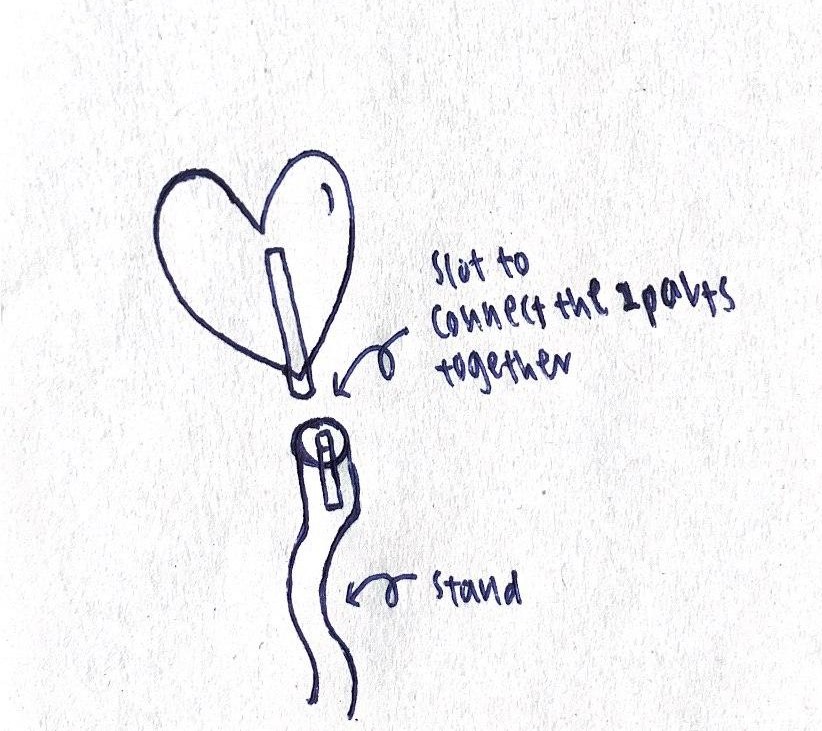 Slot to
connect the 2 parts
together
stand